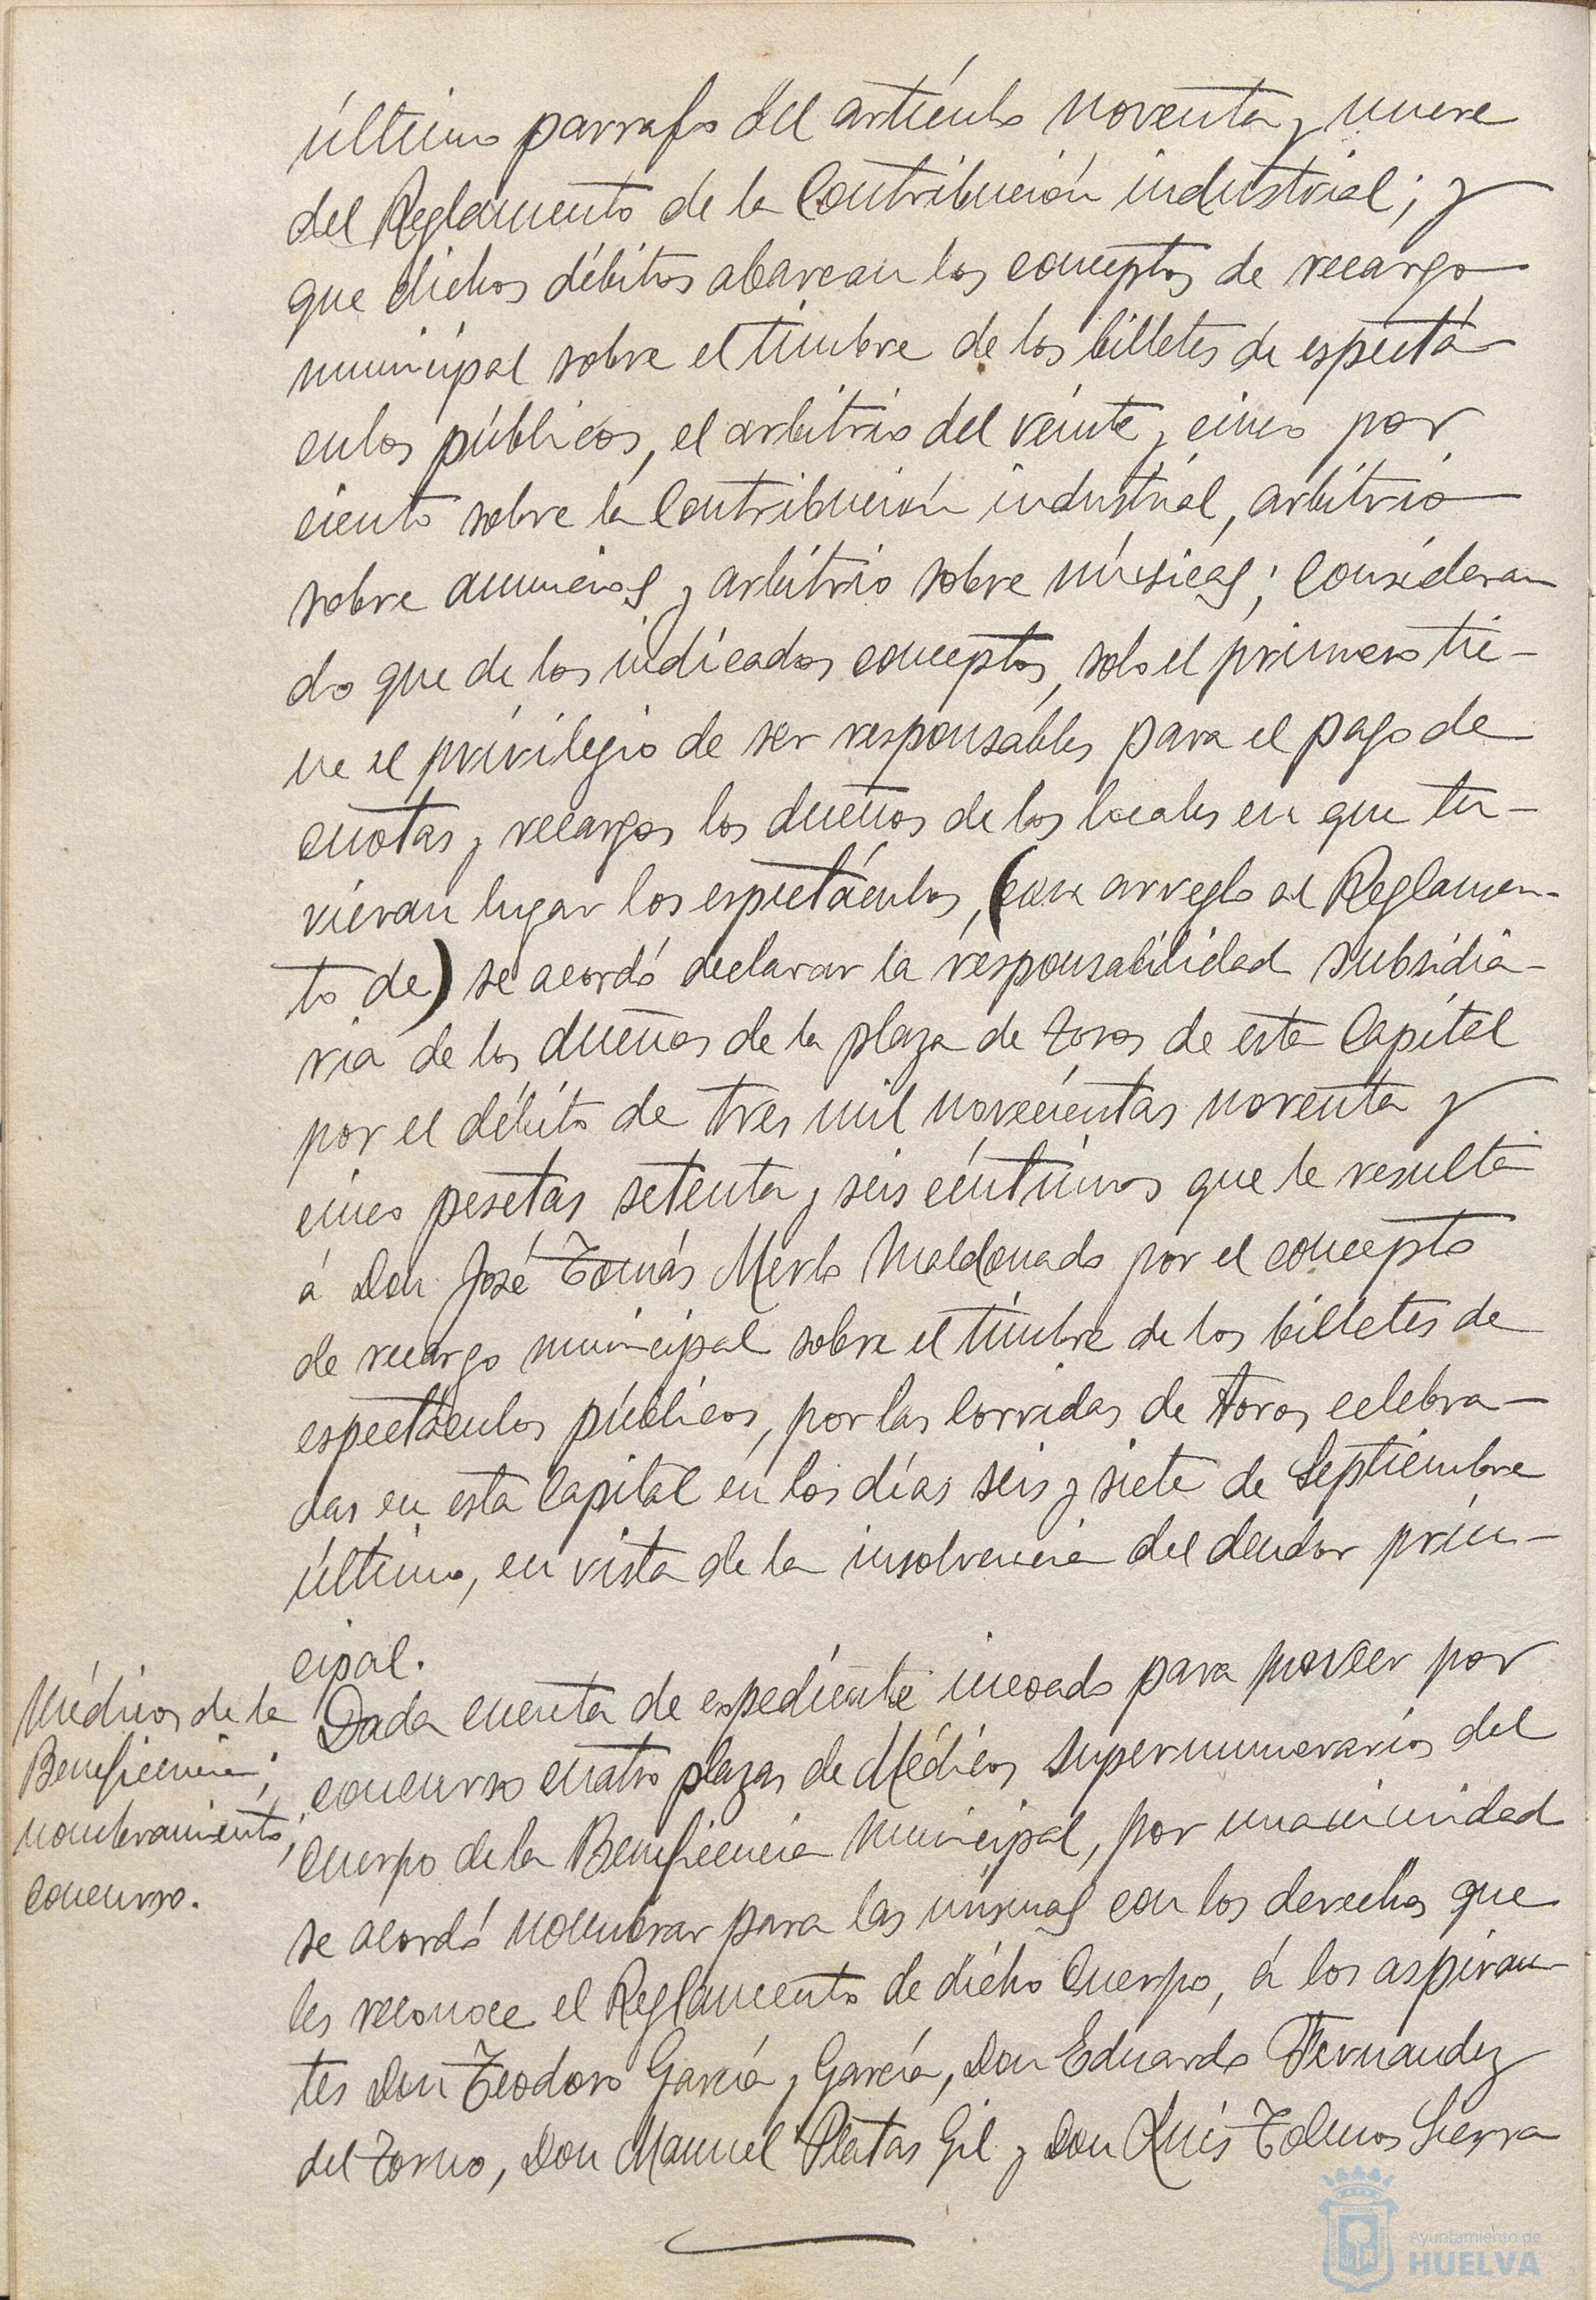 último parrafo del artículo noventa y nueve
del Reglamento de la Contribución industrial; y
que dichos débitos abarcan los conceptos de recargo
municipal sobre el timbre de los billetes de espectá-
culos públicos, el arbitrio del veinte y cinco por
ciento sobre la Contribución industrial, arbitrio
sobre anuncios y arbitrio sobre músicas; Consideran-
do que de los indicados conceptos, solo el primero tie-
ne el privilegio de ser responsables para el pago de
cuotas y recargos los dueños de los locales en que tu-
vieran lugar los espectáculos, (con arreglo al Reglamen-
to de) se acordó declarar la responsabilidad subsidia-
ria de los dueños de la plaza de toros de esta Capital
por el débito de tres mil novecientas noventa y
cinco pesetas setenta y seis céntimos que le resulta
á Don José Tomás Merlo Maldonado por el concepto
de recargo municipal sobre el timbre de los billetes de
espectáculos públicos, por las corridas de toros celebra-
das en esta Capital en los días seis y siete de Septiembre
último, en vista de la insolvencia del deudor prin-
cipal.
Médicos de la
Beneficencia;
nombramiento;
concurso.
Dada cuenta de expediente incoado para proveer por
concurso cuatro plazas de Médicos supernumerarios del
Cuerpo de la Beneficencia Municipal, por unanimidad
se acordó nombrar para las mismas con los derechos que
les reconoce el Reglamento de dicho Cuerpo, á los aspiran-
tes Don Teodoro García y García, Don Eduardo Fernandez
del Torno, Don Manuel Platas Gil y Don Luis Tolmos Sierra
Ayuntamiento de
HUELVA